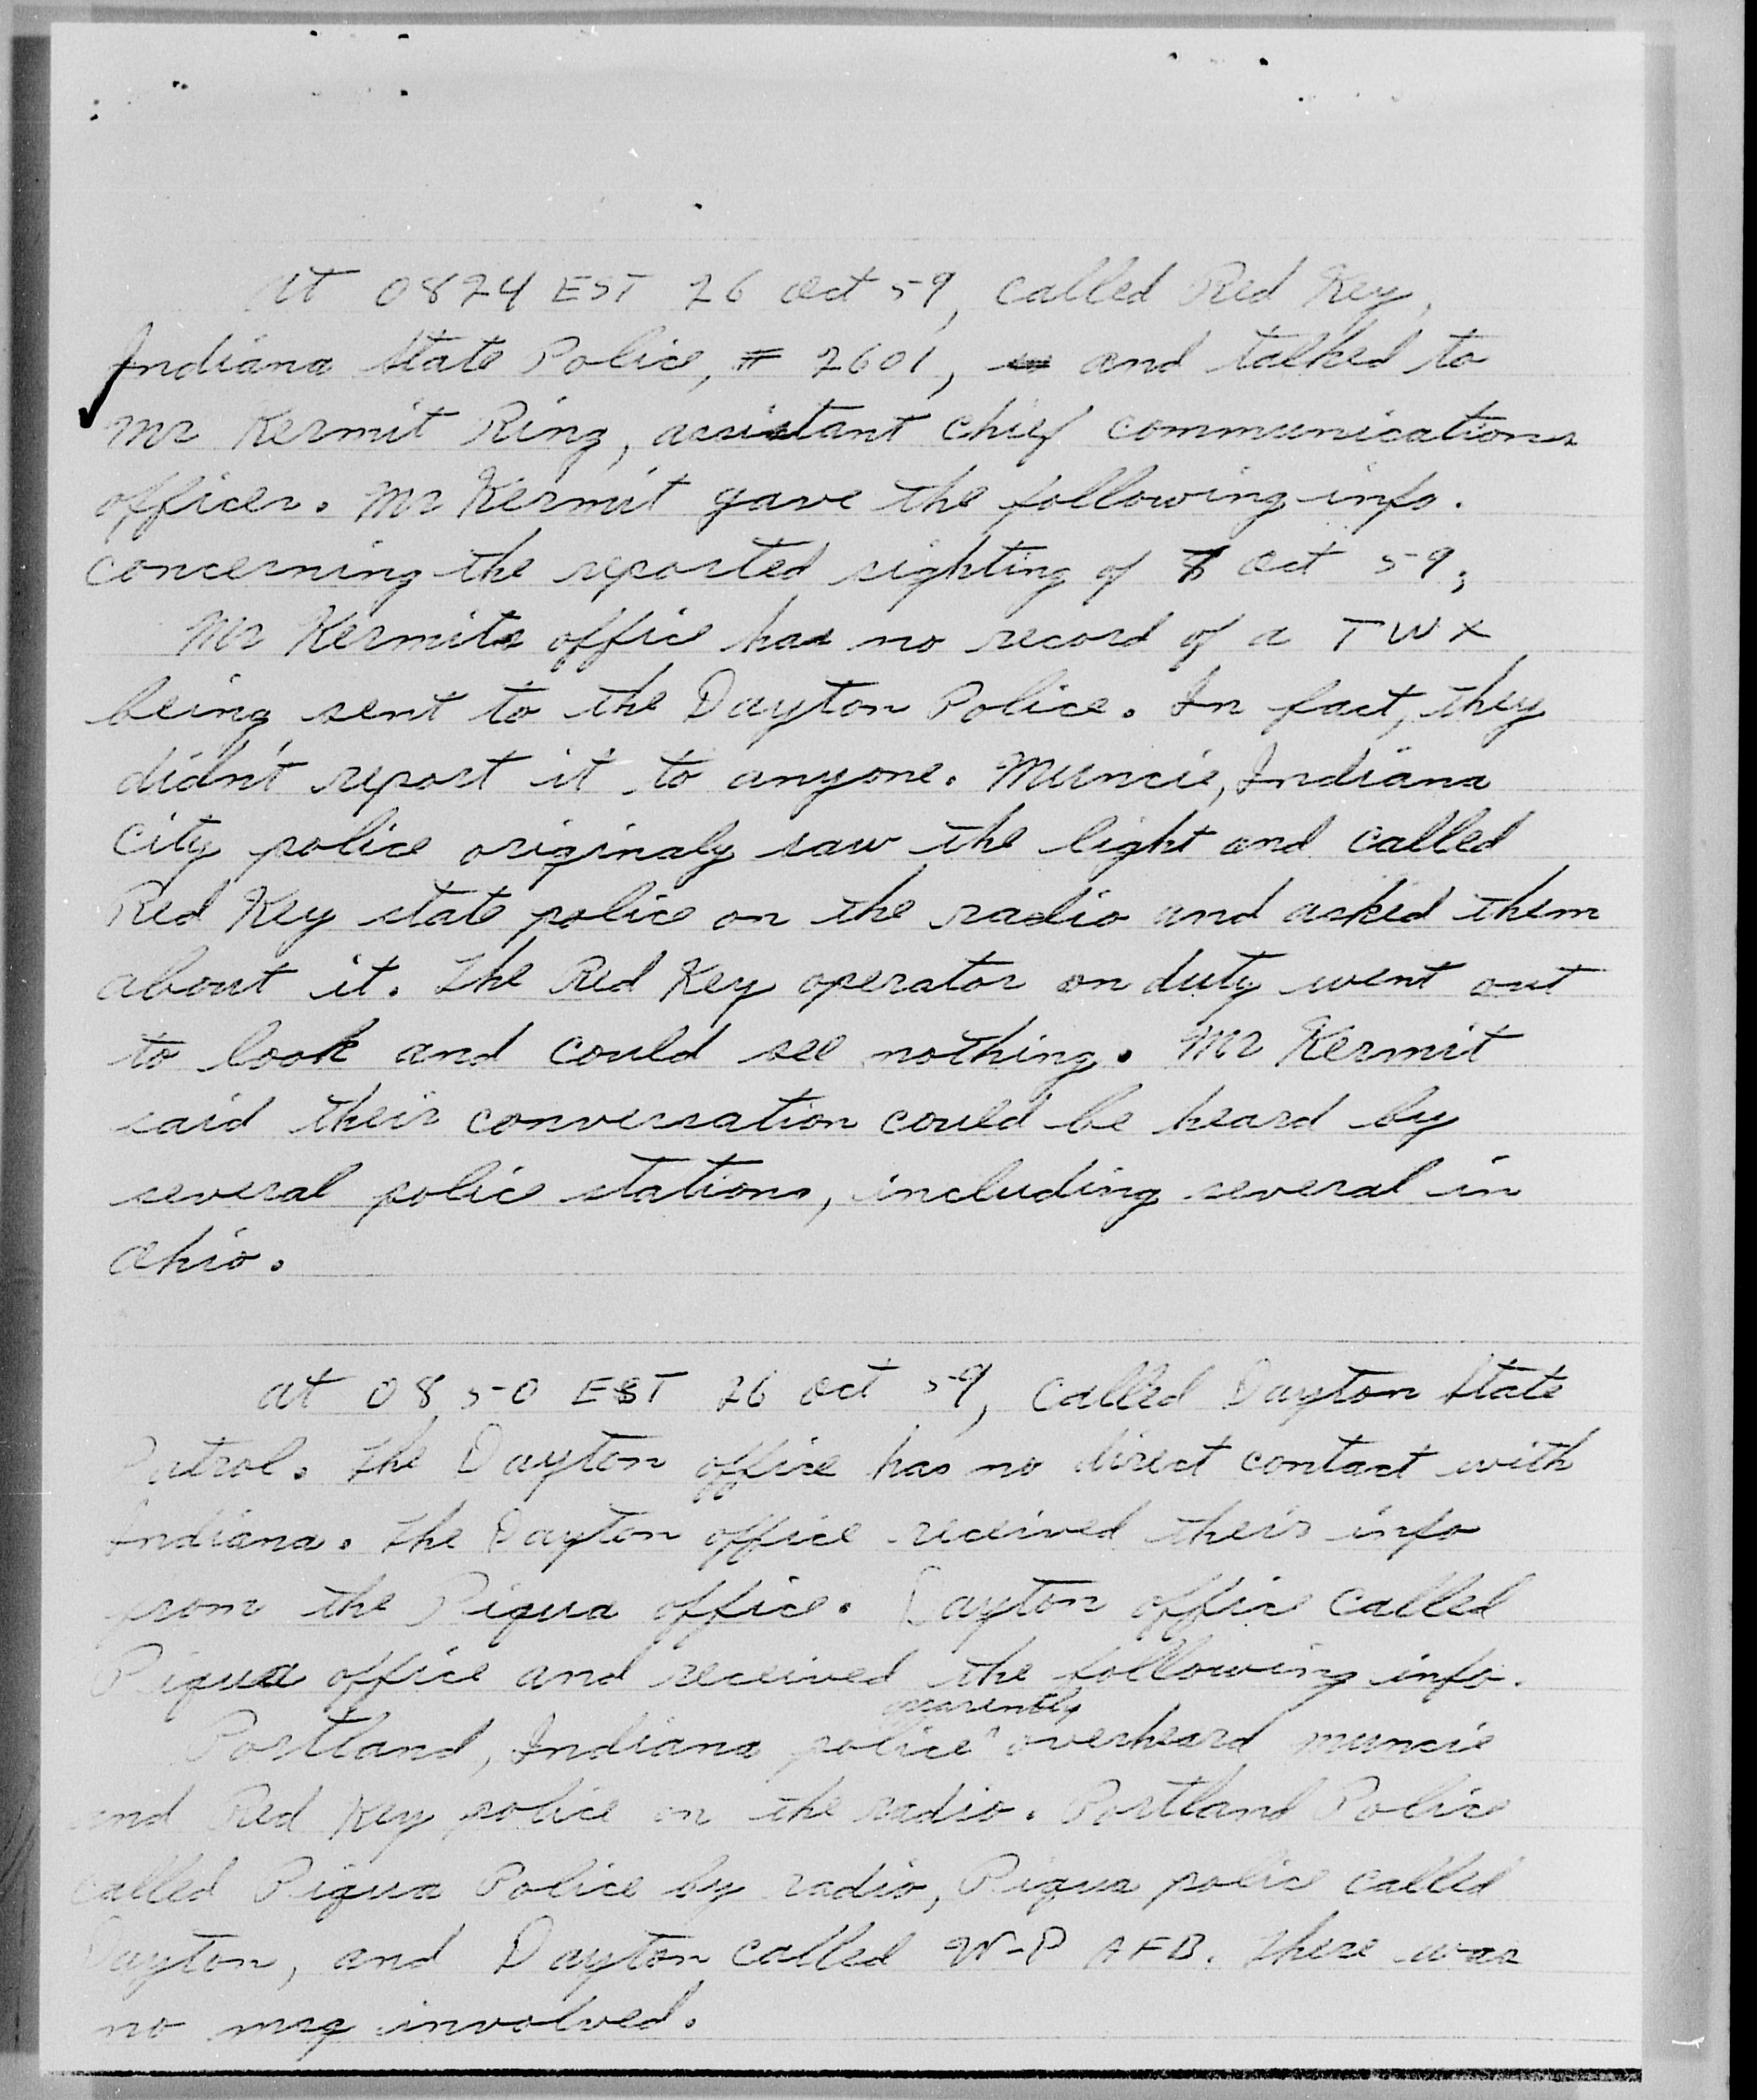 At 0824 EST 26 Oct 59, called Red Key,
Indiana State Police, # 2601, and talked to
Mr Kermit Ring, assistant chief communications
officer. Mr Kermit gave the following info.
concerning the reported sighting of Oct 59;
Mr Kermits office has no record of a TWX
being sent to the Dayton Police. In fact, they
didn't report it to anyone. Muncie, Indiana
City police originaly saw the light and called
Red Key state police on the radio and asked them
about it. The Red Key operator on duty went out
to look and could see nothing. Mr Kermit
said their conversation could be heard by
several police stations, including several in
Ohio.
At 0850 EST 26 Oct 59, called Dayton State
Patrol. The Dayton office has no direct contact with
Indiana. The Dayton office received their info
from the Piqua office. Dayton office called
Piqua office and received the following info.
Portland, Indiana police apparently overheard Muncie
and Red Key police on the radio. Portland Police
called Piqua Police by radio, Piqua police called
Dayton, and Dayton called W-P AFB. There was
no msg involved.